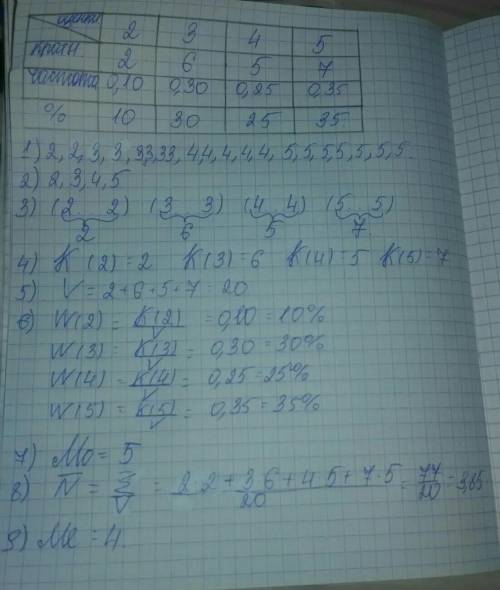 оценки 2 3 4 5
2 6 5 7
частота 0,10 0,30 0,25 0,35
% 10 30 25 35
1) 2, 2, 3, 3, 3,3,3,3, 4,4, 4, 4, 4, 5, 5, 5, 5, 5, 5, 5.
2) 2, 3, 4, 5
3) (2 2) (3 3) (4 4) (5 5)
2 6 5 7
4) K (2) = 2 K (3) = 6 K (4) = 5 K (5) = 7
5) V = 2+6+5+7 = 20
6) W(2) = K(2)/V = 0,10 = 10%
W(3) = K(3)/V = 0,30 = 30%
W(4) = K(4)/V = 0,25 = 25%
W(5) = K(5)/V = 0,35 = 35%
7) Mo = 5
8) N = Σ/V = 2·2+3·6+4·5+7·5/20 = 77/20 = 3,85
9) Me = 4.